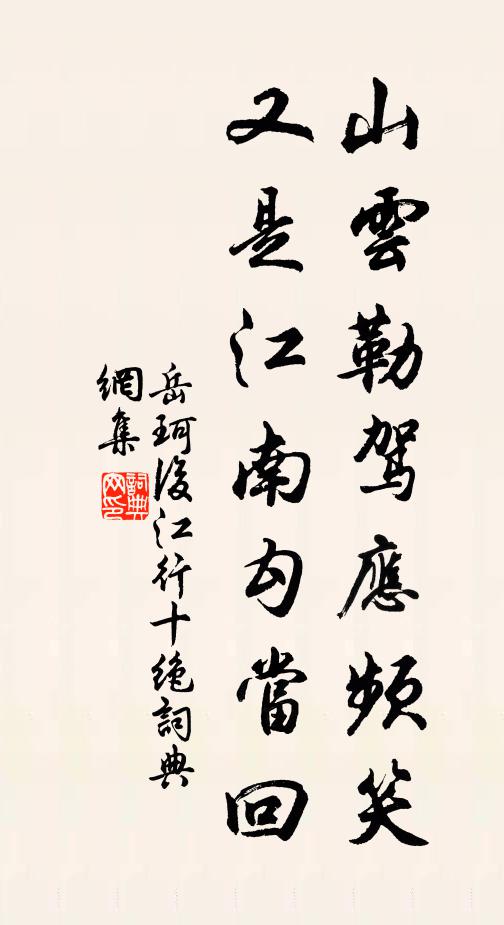 山雲勒駕應頻笑
又是江南勾當回
岳珂後江行十絶詞典
網集
詞典
网印